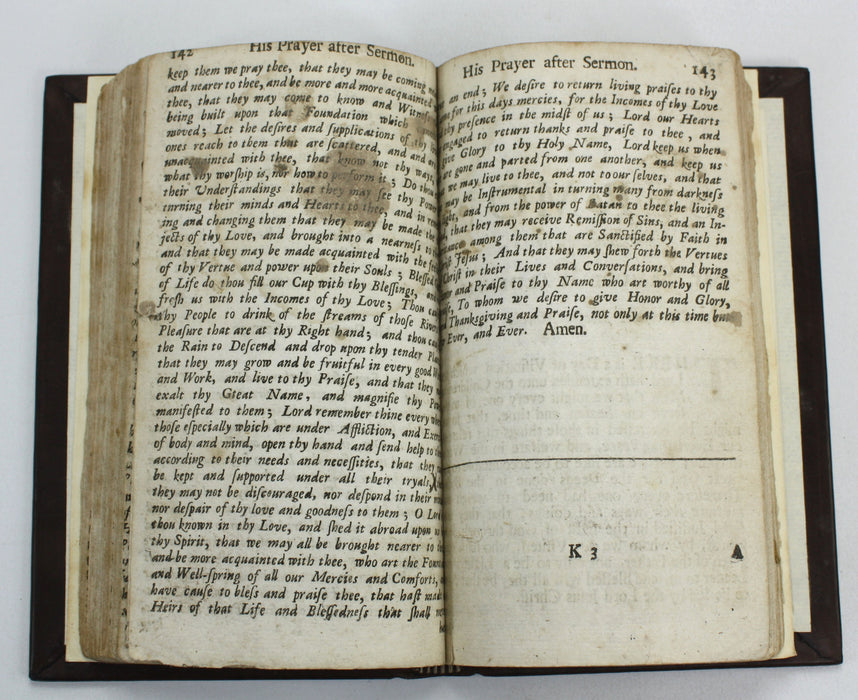 142 His Prayer after Sermon.
keep them we pray thee, that they may be coming
and nearer to thee, and be more and more acquainted
thee, that they may come to know and Witness
being built upon that Foundation which
moved; Let the desires and ſupplications of thy
ones reach to them that are ſcattered, and and
unacquainted with thee, that know not thy ways,
what thy worſhip is, nor how to perform it; Do thou
their Underſtandings that they may ſee thy Power
turning their minds and Hearts to thee, and in
ing and changing them that they may be made the
jects of thy Love, and brought into a nearneſs to
and that they may be made acquainted with the
of thy Vertue and power upon their Souls; Bleſſed
of Life do thou fill our Cup with thy Bleſſings, and
freſh us with the Incomes of thy Love; Thou
thy People to drink of the ſtreams of thoſe Rivers
Pleaſure that are at thy Right hand; and thou
the Rain to Deſcend and drop upon thy tender
that they may grow and be fruitful in every good
and Work, and live to thy Praiſe, and that they
exalt thy Great Name, and magnifie thy
manifeſted to them; Lord remember thine every
thoſe eſpecially which are under Affliction, and
of body and mind, open thy hand and ſend help to
according to their needs and neceſſities, that they
be kept and ſupported under all their tryals,
they may not be diſcouraged, nor deſpond in their
nor deſpair of thy love and goodneſs to them; O
thou known in thy Love, and ſhed it abroad upon
thy Spirit, that we may all be brought nearer to
and be more acquainted with thee, who art the
and Well-ſpring of all our Mercies and Comforts,
have cauſe to bleſs and praiſe thee, that haſt made
Heirs of that Life and Bleſſedneſs that ſhall
His Prayer after Sermon. 143
an end; We deſire to return living praiſes to thy
for this days mercies, for the Incomes of thy Love
thy preſence in the midſt of us; Lord our Hearts
engaged to return thanks and praiſe to thee, and
give Glory to thy Holy Name, Lord keep us when
are gone and parted from one another, and keep us
we may live to thee, and not to our ſelves, and that
may be Inſtrumental in turning many from darkneſs
and from the power of Satan to thee the living
that they may receive Remiſſion of Sins, and an In-
among them that are Sanctified by Faith in
Jeſus; And that they may ſhew forth the Vertues
Chriſt in their Lives and Converſations, and bring
and Praiſe to thy Name who art worthy of all
To whom we deſire to give Honor and Glory,
Thankſgiving and Praiſe, not only at this time but
Ever, and Ever. Amen.
K 3 A